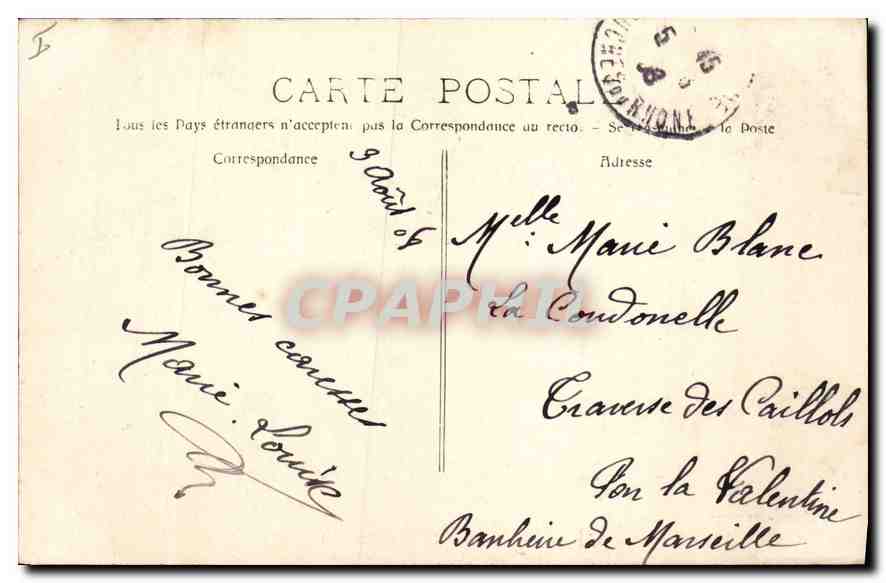 CARTE POSTALE
Tous les Pays étrangers n'acceptent pas la Correspondance au recto. - Se la Poste
Correspondance
Adresse
9 Août 06
Bonnes caresses
Marie Louise
Melle: Marie Blanc
La Coudonelle
Traverse des Caillols
Par la Valentine
Banlieue de Marseille
BOUCHES DU RHONE
CPAPHIL